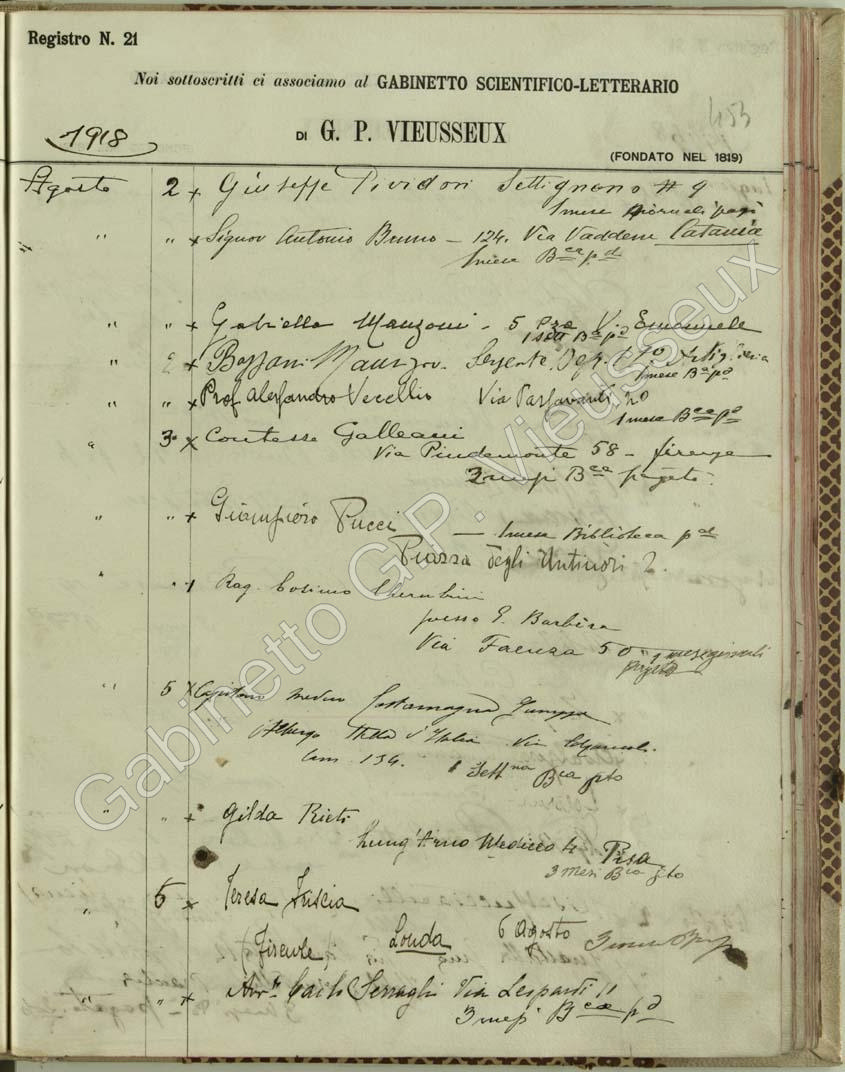 Registro N. 21
Noi sottoscritti ci associamo al GABINETTO SCIENTIFICO-LETTERARIO
453
1918
DI G. P. VIEUSSEUX
(FONDATO NEL 1819)
Agosto 2 x Giuseppe Pividori Settignano # 9
1 mese giornali
" " x Signor Antonio Bruno – 124. Via Catania
1 mese Bca pd
" " x Gabriella Manzoni - 5 Pza V. Emanuele
1 sett Bca pd
2 x Sergente
1 mese Bca pd
" " x Prof. Alessandro Vecellio Via Passavanti
1 mese Bca pd
" 3 x Contessa Galleani
Via Pindemonte 58 – firenze
3 mesi Bca pagato
" " x Giampiero Pucci
— 1 mese Biblioteca pd
Piazza degli Antinori 2.
" " Rag. Cosimo Cherubini
presso G. Barbèra
Via Faenza 50
1 mese giornali
pagato
" 5 x Capitano medico Costamagna
Albergo Stella d'Italia Via
Cam. 134. 1 Settna Bca pto
" " x Gilda Rieti
Lung'Arno Mediceo 4 Pisa
3 mesi Bca pto
" 5 x Teresa
(Firenze) Londa 6 Agosto
" " x Avv. Carlo Serragli Via Leopardi 11
3 mesi Bca pd
Gabinetto G.P. Vieusseux